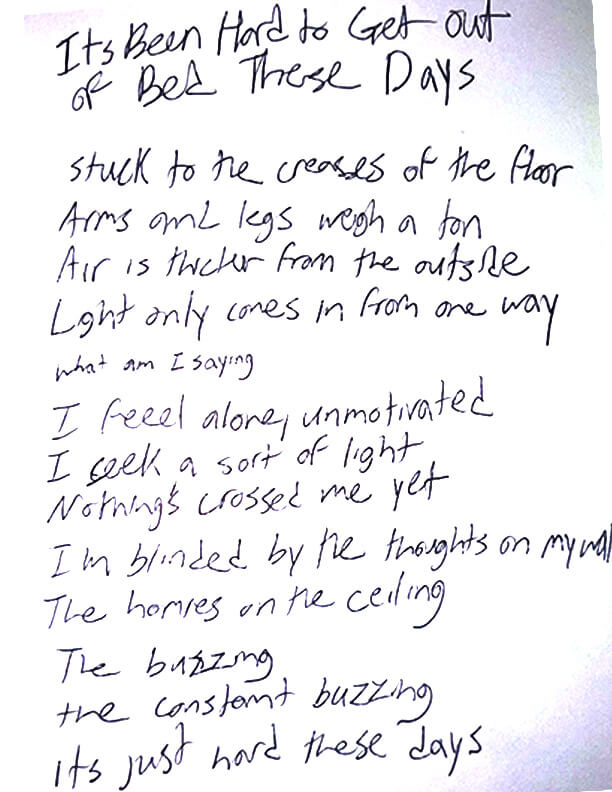 Its Been Hard to Get out
of Bed These Days
stuck to the creases of the floor
Arms and legs weigh a ton
Air is thicker from the outside
Light only comes in from one way
what am I saying
I feeel alone, unmotivated
I seek a sort of light
Nothing's crossed me yet
I'm blinded by the thoughts on my wall
The homies on the ceiling
The buzzing
the constant buzzing
its just hard these days